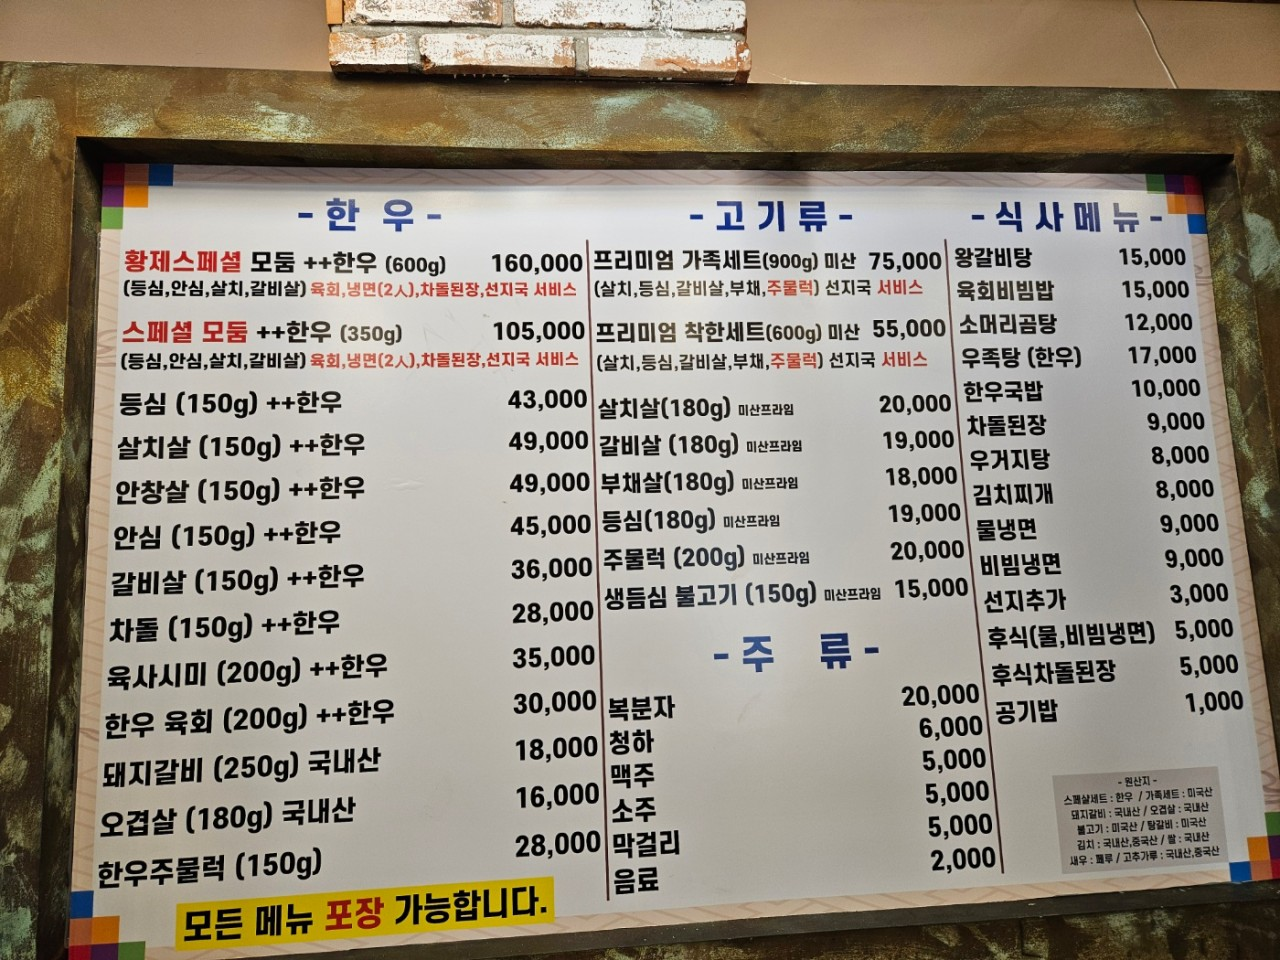 - 한 우 -
황제스페셜 모둠 ++한우 (600g) 160,000
(등심,안심,살치,갈비살) 육회,냉면(2人),차돌된장,선지국 서비스
스페셜 모둠 ++한우 (350g) 105,000
(등심,안심,살치,갈비살) 육회,냉면(2人),차돌된장,선지국 서비스
등심 (150g) ++한우 43,000
살치살 (150g) ++한우 49,000
안창살 (150g) ++한우 49,000
안심 (150g) ++한우 45,000
갈비살 (150g) ++한우 36,000
차돌 (150g) ++한우 28,000
육사시미 (200g) ++한우 35,000
한우 육회 (200g) ++한우 30,000
돼지갈비 (250g) 국내산 18,000
오겹살 (180g) 국내산 16,000
한우주물럭 (150g) 28,000
모든 메뉴 포장 가능합니다.
- 고 기 류 -
프리미엄 가족세트(900g) 미산 75,000
(살치,등심,갈비살,부채,주물럭) 선지국 서비스
프리미엄 착한세트(600g) 미산 55,000
(살치,등심,갈비살,부채,주물럭) 선지국 서비스
살치살(180g) 미산프라임 20,000
갈비살 (180g) 미산프라임 19,000
부채살(180g) 미산프라임 18,000
등심(180g) 미산프라임 19,000
주물럭 (200g) 미산프라임 20,000
생듬심 불고기 (150g) 미산프라임 15,000
- 주 류 -
복분자 20,000
청하 6,000
맥주 5,000
소주 5,000
막걸리 5,000
음료 2,000
- 식 사 메 뉴 -
왕갈비탕 15,000
육회비빔밥 15,000
소머리곰탕 12,000
우족탕 (한우) 17,000
한우국밥 10,000
차돌된장 9,000
우거지탕 8,000
김치찌개 8,000
물냉면 9,000
비빔냉면 9,000
선지추가 3,000
후식(물,비빔냉면) 5,000
후식차돌된장 5,000
공기밥 1,000
- 원산지 -
스페살세트 : 한우 / 가족세트 : 미국산
돼지갈비 : 국내산 / 오겹살 : 국내산
불고기 : 미국산 / 탕갈비 : 미국산
김치 : 국내산,중국산 / 쌀 : 국내산
새우 : 페루 / 고추가루 : 국내산,중국산